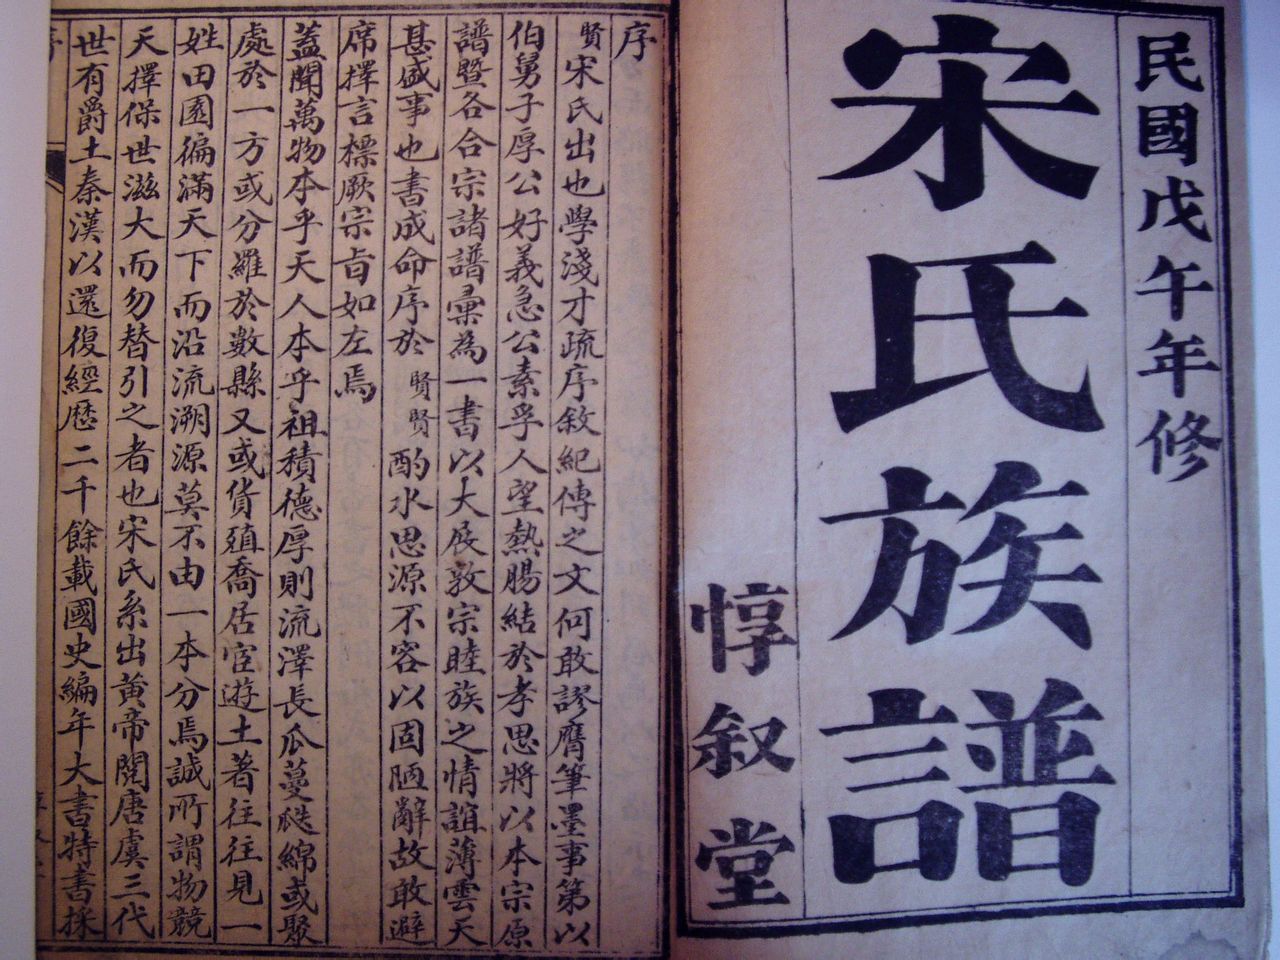 民國戊午年修
宋氏族譜
惇叙堂
序
賢宋氏出也學淺才疏序敘紀傳之文何敢謬膺筆墨事第以
伯舅子厚公好義急公素孚人望熱腸結於孝思將以本宗原
譜暨各合宗諸譜彙為一書以大展敦宗睦族之情誼薄雲天
甚盛事也書成命序於賢賢酌水思源不容以固陋辭故敢避
席擇言標厥宗旨如左焉
蓋聞萬物本乎天人本乎祖積德厚則流澤長瓜蔓瓞綿或聚
處於一方或分羅於數縣又或貨殖喬居宦遊土著往往見一
姓田園徧滿天下而沿流溯源莫不由一本分焉誠所謂物競
天擇保世滋大而勿替引之者也宋氏系出黃帝閱唐虞三代
世有爵土秦漢以還復經歷二千餘載國史編年大書特書採